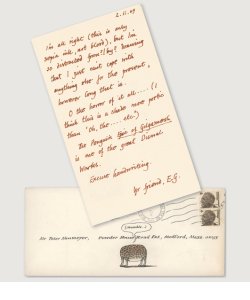 2.11.69
I'm all right (this is only
sepia ink, not blood), but I'm
so distracted from/by? drawing
that I just can't cope with
anything else for the present,
however long that is.
O the horror of it all.... (I
think this is a shade more poetic
than 'Oh, the ... etc.)
The Penguin Epic of Gilgamesh
is one of the great Dismal
Works.
Excuse handwriting.
Yr friend, E.G.
Mr Peter Neumeyer, Powder House Road Ext., Medford, Mass. 02155